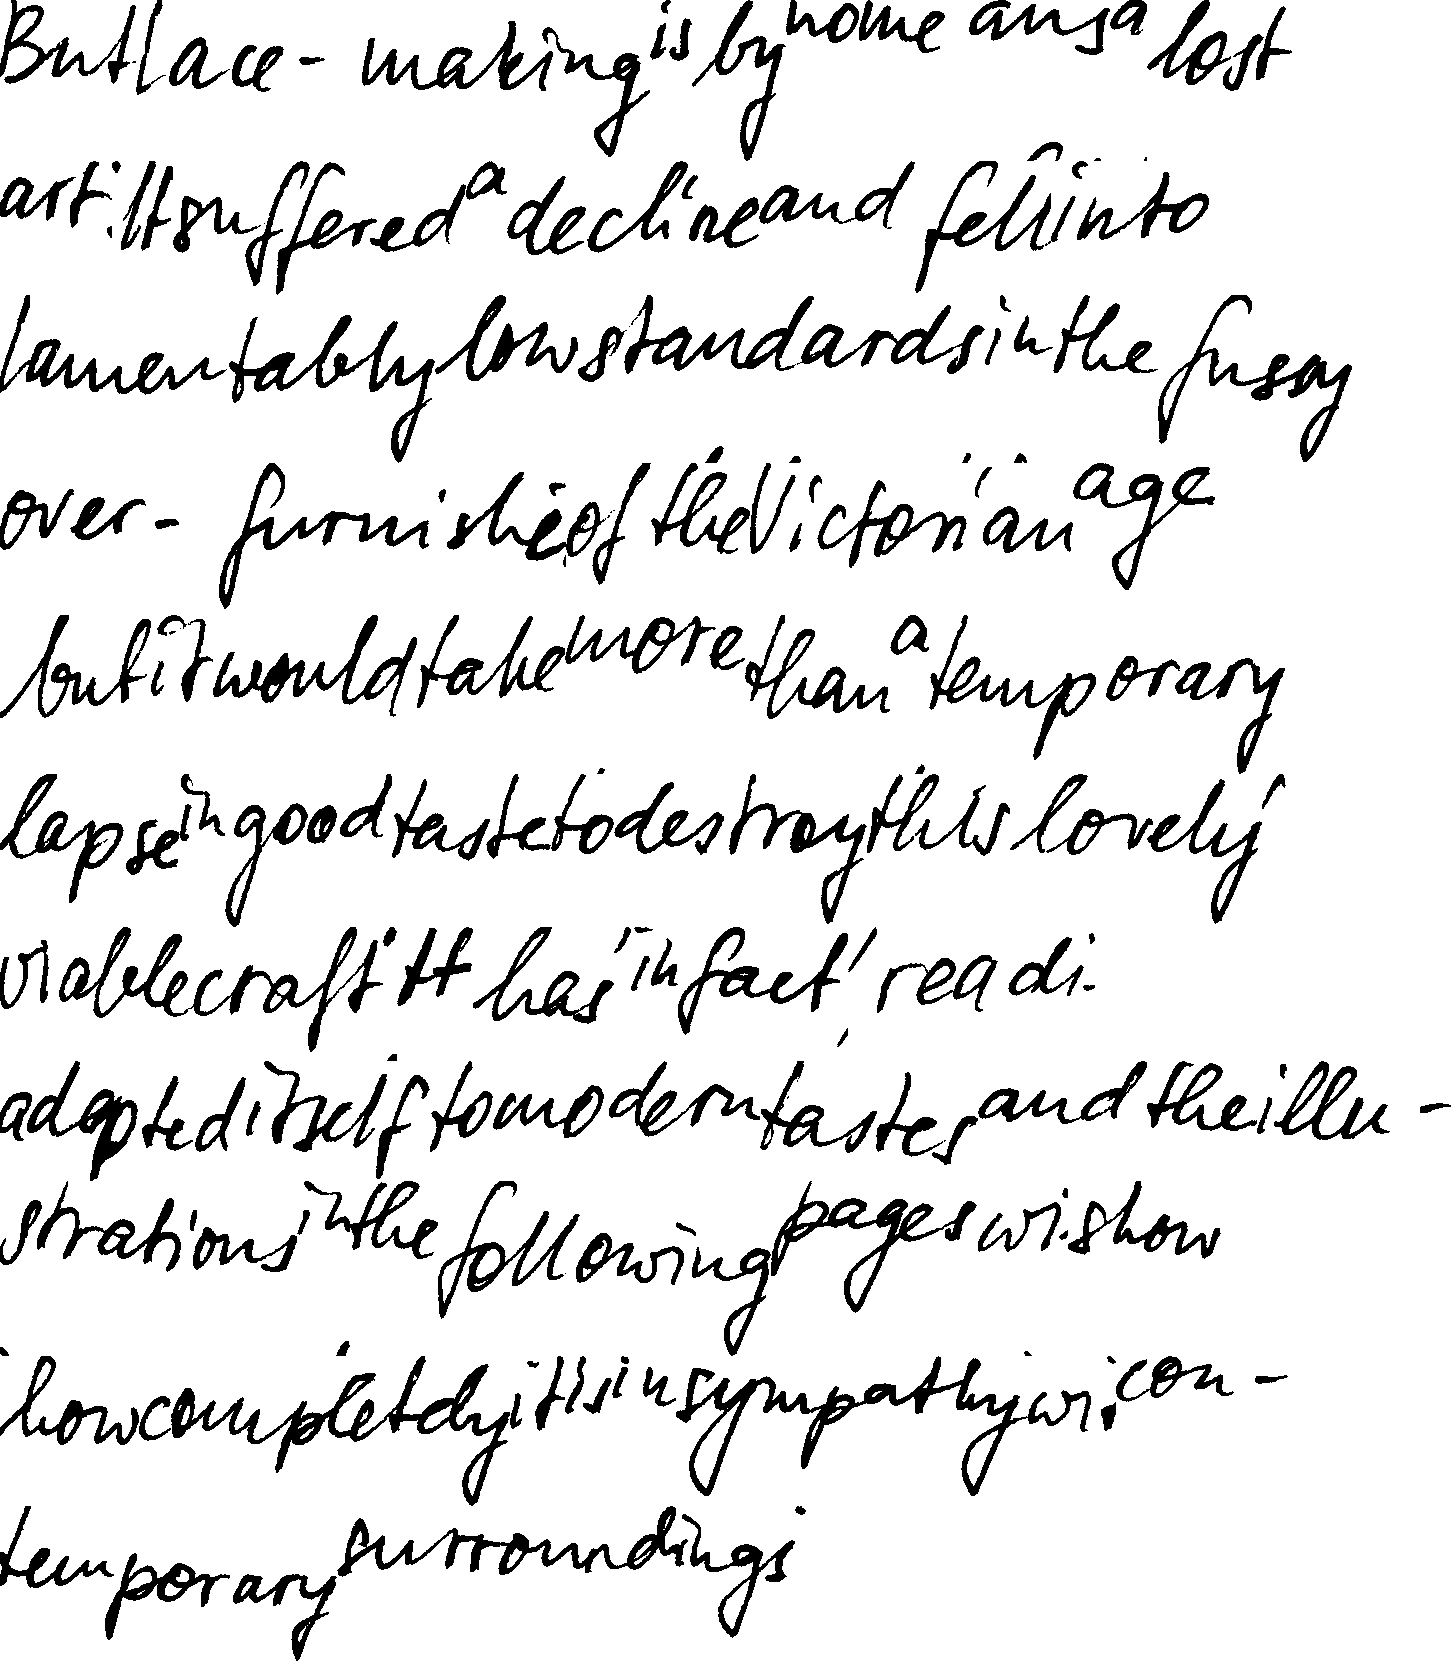 But lace - making is by nome ans a lost
art. It suffered a decline and fell into
lamentably low standards in the fussy
over - furnishe of the Victorian age
but it would take more than a temporary
lapse in good taste to destroy this lovely
viable craft. It has in fact, readi.
adapted itself to modern tastes and the illu -
strations in the following pages wi. show
how completely it is in sympathy wi. con -
temporary surroundings